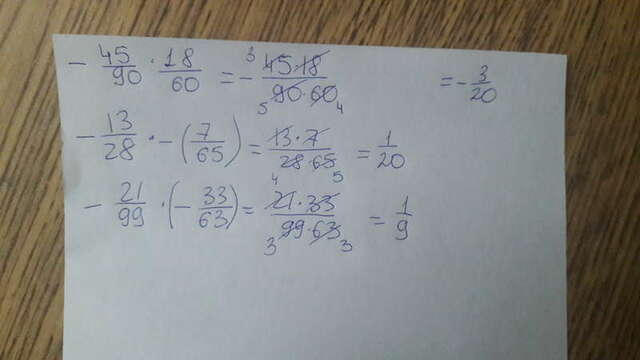 - 45/90 · 18/60 = - ³45·18/₅90·60₄ = - 3/20
- 13/28 · - (7/65) = 13·7/₄28·65₅ = 1/20
- 21/99 · (- 33/63) = 21·33/₃99·63₃ = 1/9